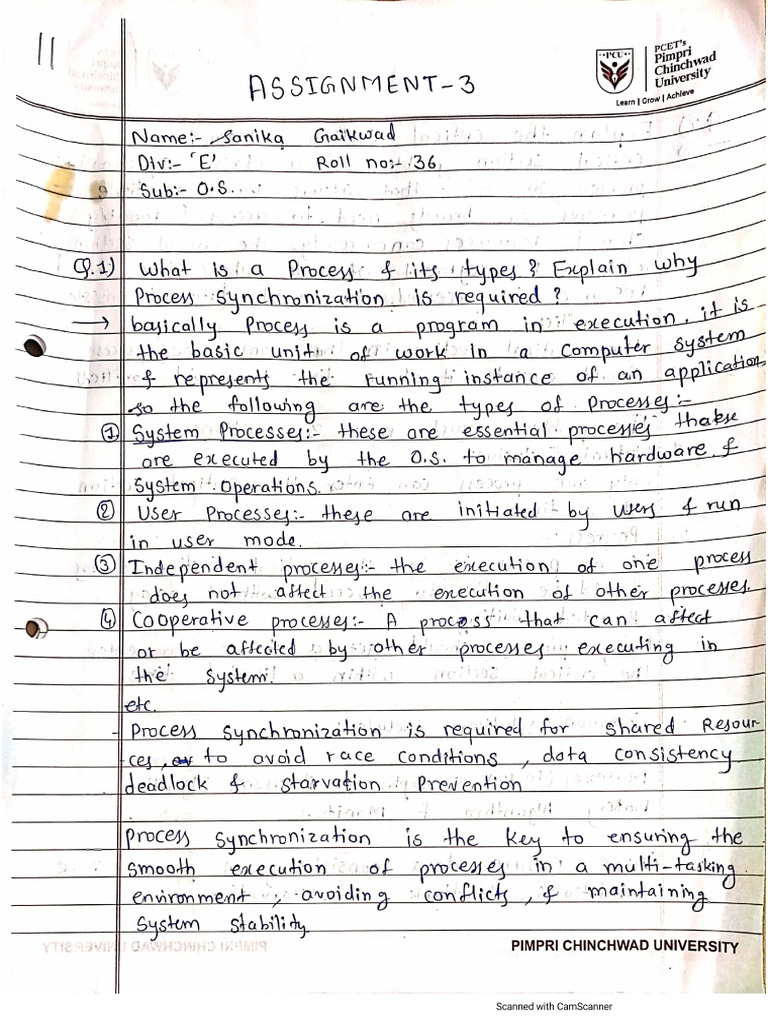 11
ASSIGNMENT-3
PCU
PCET's
Pimpri
Chinchwad
University
Learn | Grow | Achieve
Name:- Sanika Gaikwad
Div:- 'E' Roll no:- 36
Sub:- O.S.
Q.1) What is a Process & its types? Explain why
Process Synchronization is required?
→ basically Process is a program in execution, it is
the basic unit of work in a computer system
& represents the running instance of an application
so the following are the types of processes:-
① System Processes:- these are essential processes that
are executed by the O.S. to manage hardware &
System operations.
② User Processes:- these are initiated by users & run
in user mode.
③ Independent processes:- the execution of one process
does not affect the execution of other processes.
④ Cooperative processes:- A process that can affect
or be affected by other processes executing in
the system.
etc.
Process Synchronization is required for shared Resour-
ces, to avoid race conditions, data consistency
deadlock & starvation Prevention
Process Synchronization is the key to ensuring the
smooth execution of processes in a multi-tasking
environment, avoiding conflicts, & maintaining
System stability.
PIMPRI CHINCHWAD UNIVERSITY
Scanned with CamScanner